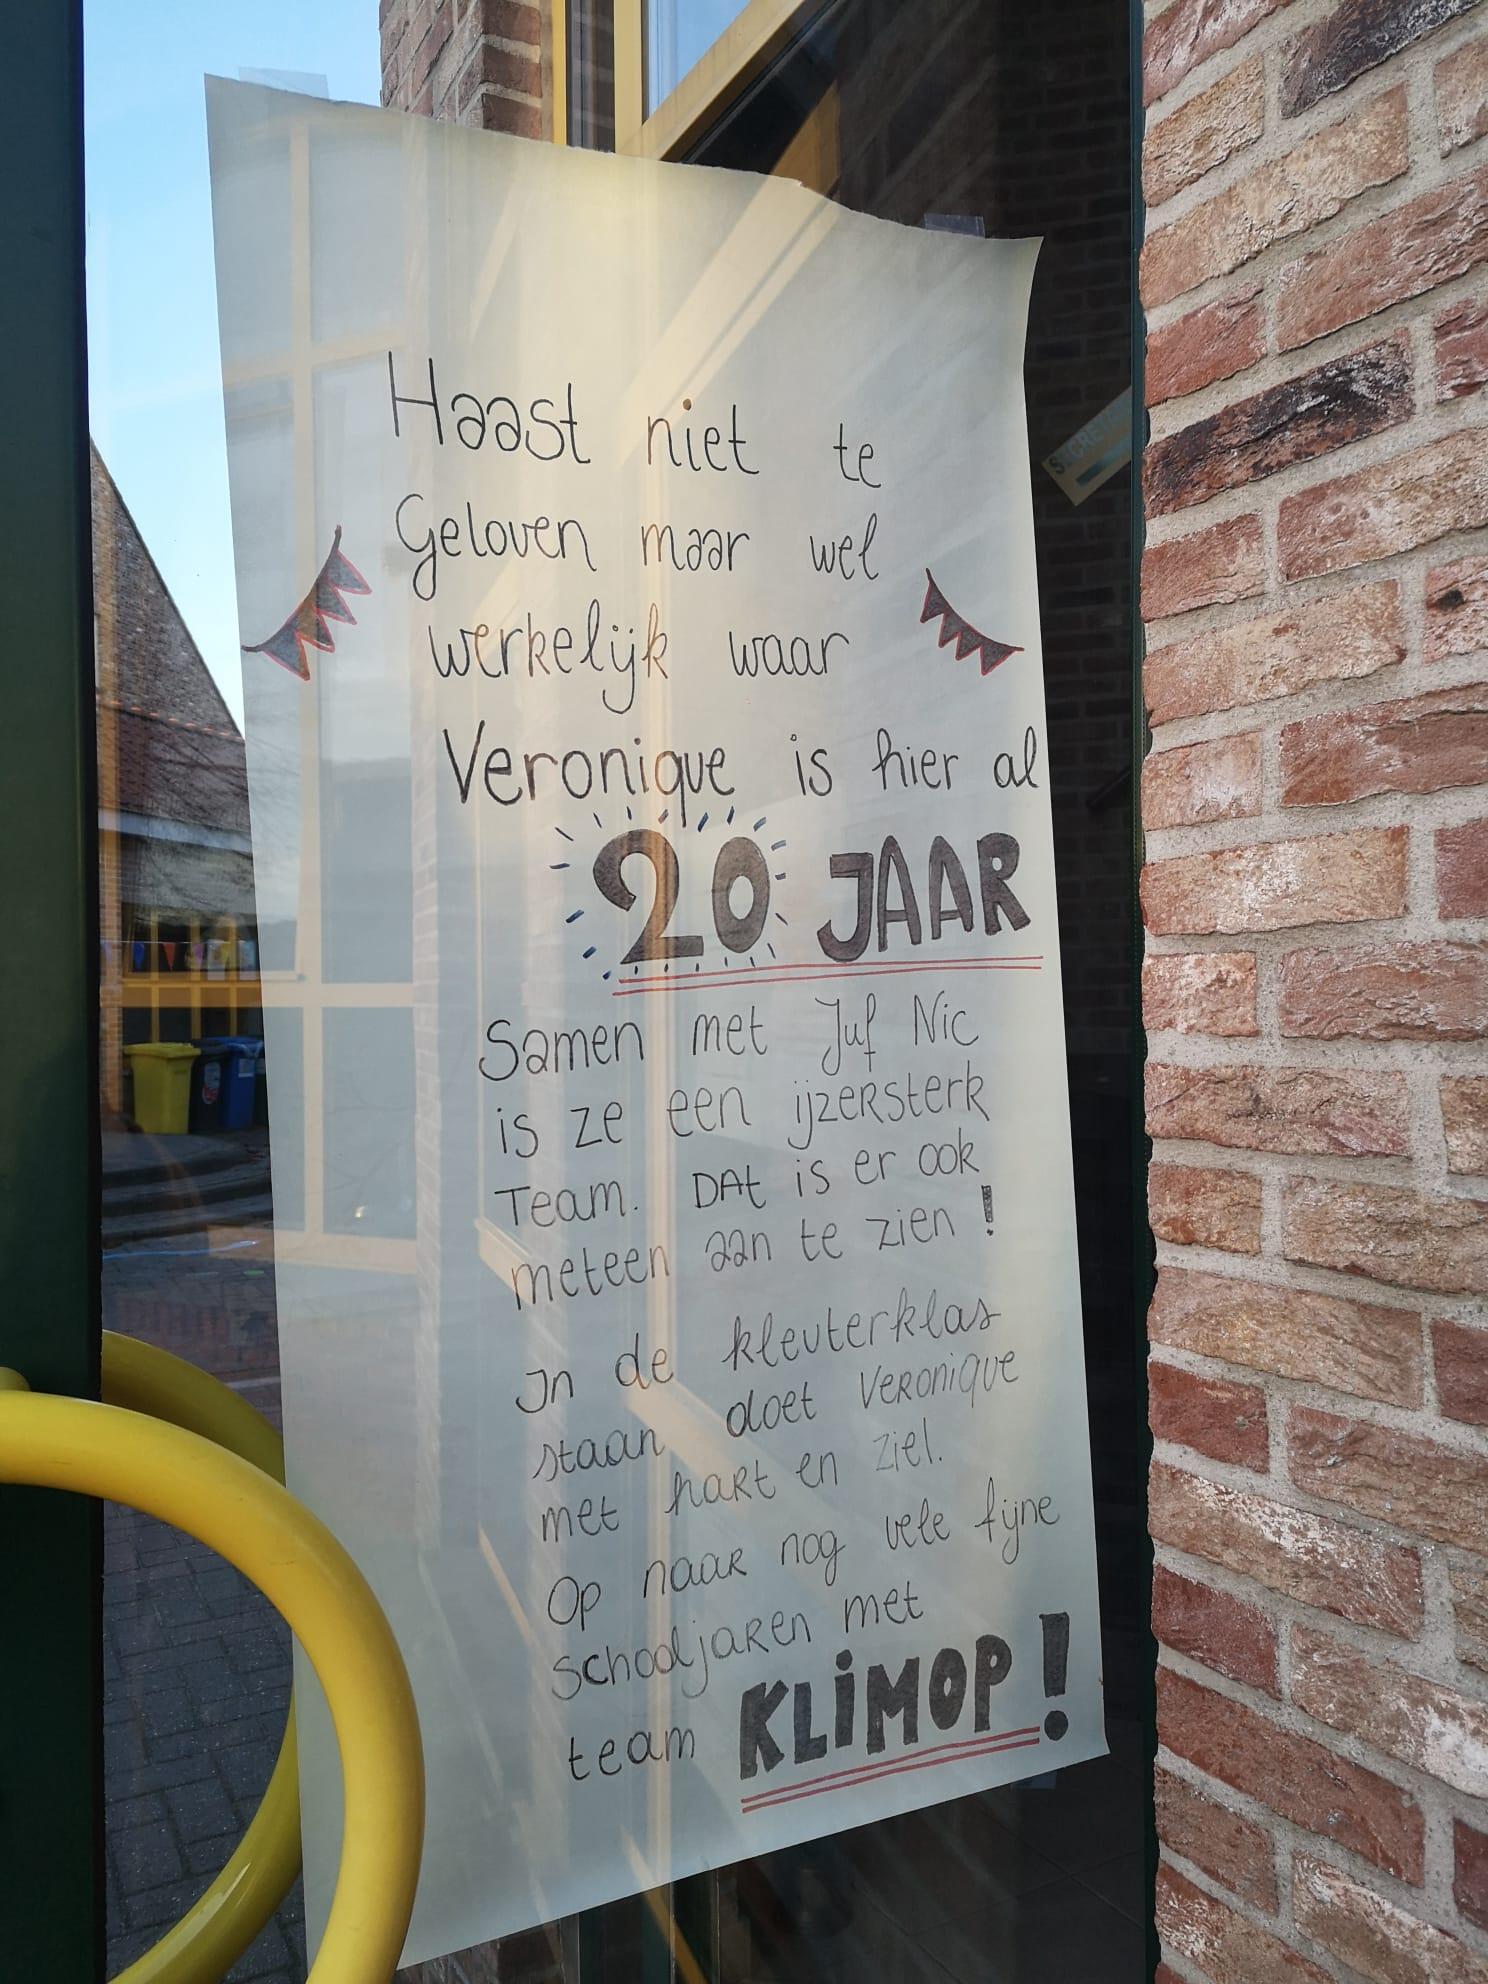 Haast niet te
Geloven maar wel
werkelijk waar
Veronique is hier al
20 JAAR
Samen met Juf Nic
is ze een ijzersterk
Team. DAt is er ook
meteen aan te zien !
In de kleuterklas
staan doet Veronique
met hart en ziel.
Op naar nog vele fijne
schooljaren met
team KLiMOP!